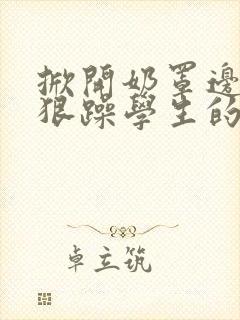 掀開奶罩邊
狠躁學生的
卓立筑